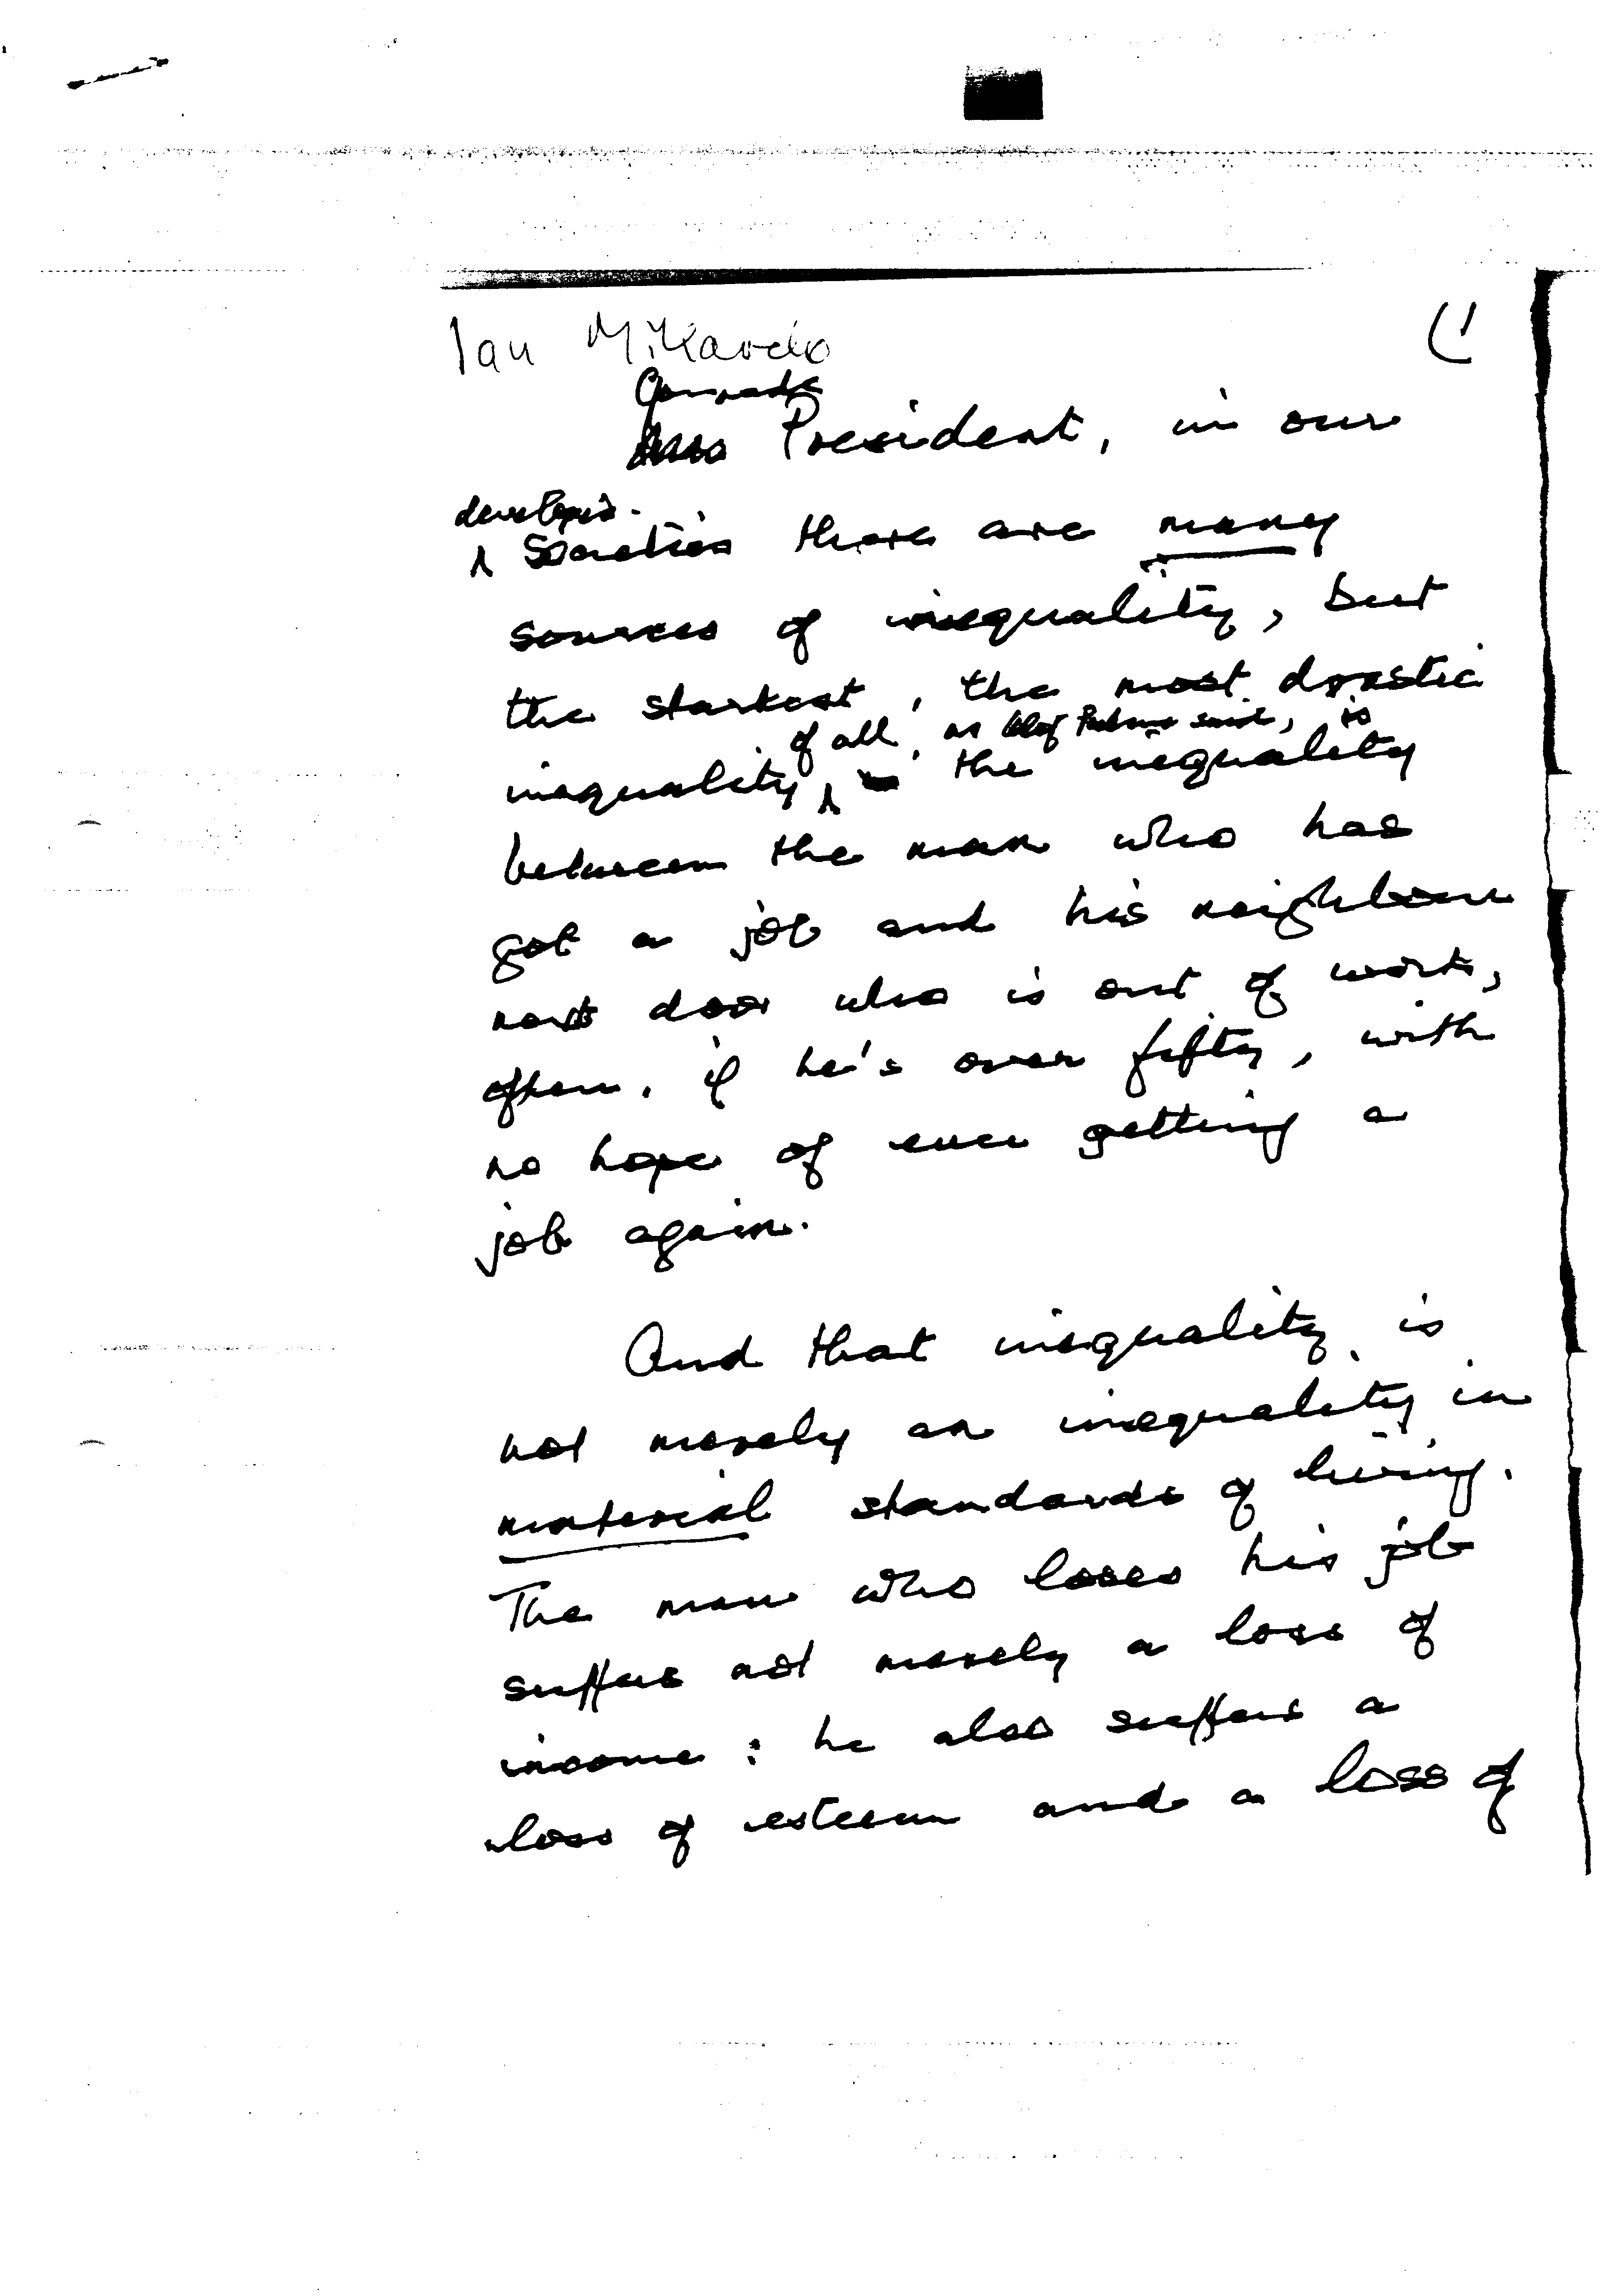 Ian Mikardo
(1
Comrade
President, in our
developed
societies there are many
sources of inequality, but
the starkest, the most drastic
of all, as Olof Palme said, is
inequality, the inequality
between the man who has
got a job and his neighbour
next door who is out of work,
often, if he's over fifty, with
no hope of ever getting a
job again.
And that inequality is
not merely an inequality in
material standards of living.
The man who loses his job
suffers not merely a loss of
income: he also suffers a
loss of esteem and a loss of